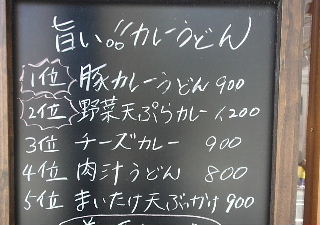 旨い!!カレーうどん
1位 豚カレーうどん 900
2位 野菜天ぷらカレー 1200
3位 チーズカレー 900
4位 肉汁うどん 800
5位 まいたけ天ぶっかけ 900